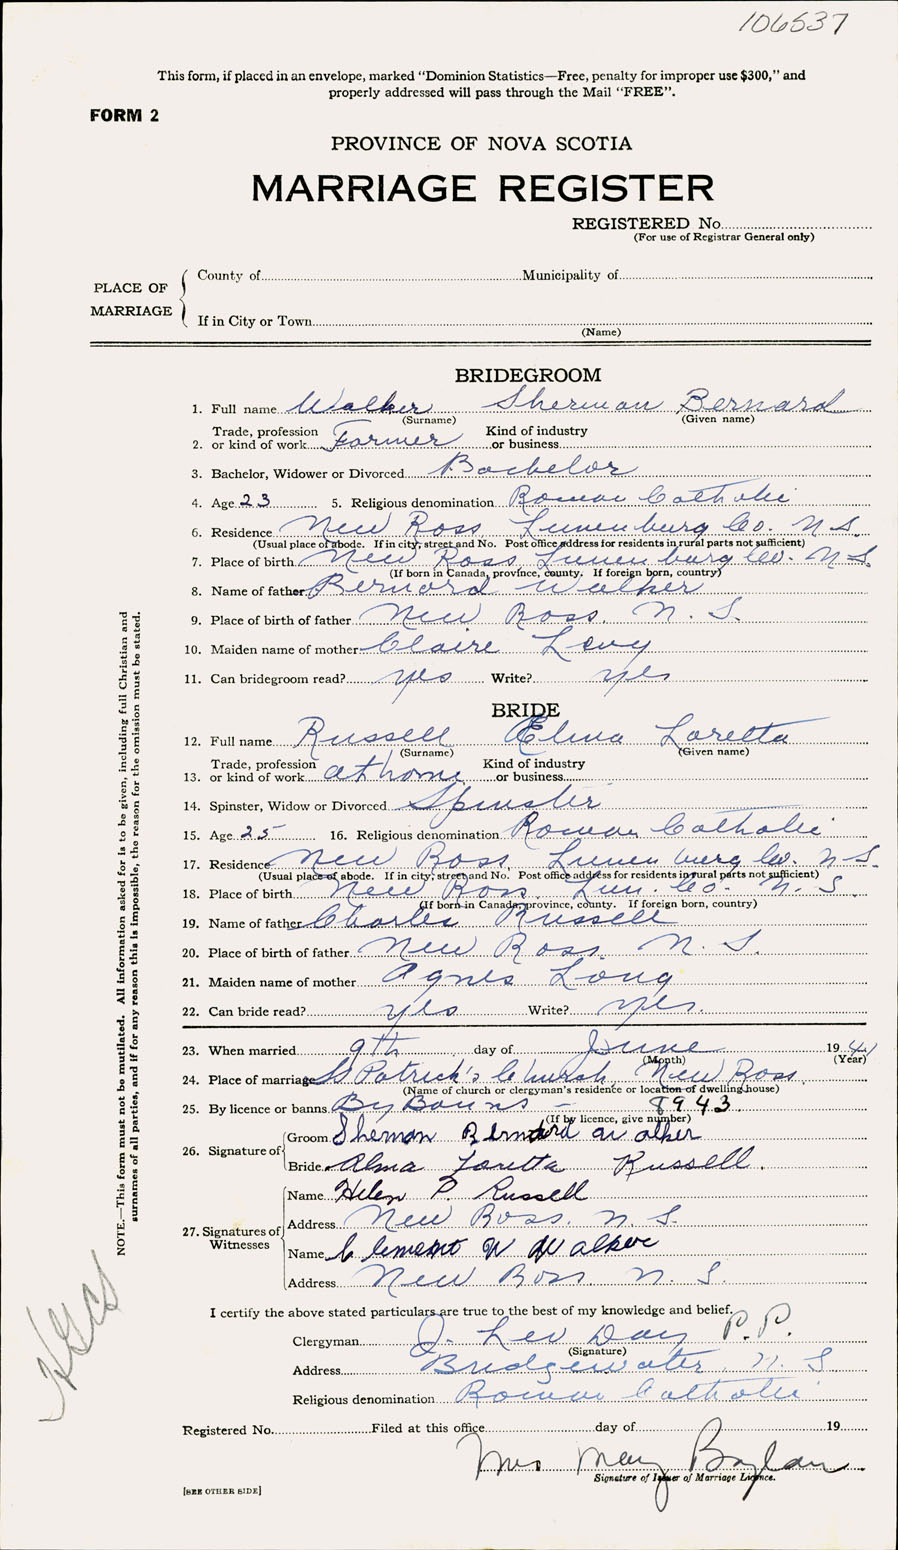 106537
This form, if placed in an envelope, marked "Dominion Statistics—Free, penalty for improper use $300," and
properly addressed will pass through the Mail "FREE".
FORM 2
PROVINCE OF NOVA SCOTIA
MARRIAGE REGISTER
REGISTERED No.
(For use of Registrar General only)
PLACE OF MARRIAGE
County of Municipality of
If in City or Town
(Name)
BRIDEGROOM
1. Full name Walker Sherman Bernard
(Surname) (Given name)
2. Trade, profession or kind of work Farmer Kind of industry or business
3. Bachelor, Widower or Divorced Bachelor
4. Age 23 5. Religious denomination Roman Catholic
6. Residence New Ross Lunenburg Co. N.S.
(Usual place of abode. If in city, street and No. Post office address for residents in rural parts not sufficient)
7. Place of birth New Ross Lunenburg Co. N.S.
(If born in Canada, province, county. If foreign born, country)
8. Name of father Bernard Walker
9. Place of birth of father New Ross. N.S.
10. Maiden name of mother Claire Levy
11. Can bridegroom read? yes Write? yes
BRIDE
12. Full name Russell Elma Loretta
(Surname) (Given name)
13. Trade, profession or kind of work at home Kind of industry or business
14. Spinster, Widow or Divorced Spinster
15. Age 25 16. Religious denomination Roman Catholic
17. Residence New Ross, Lunenburg Co. N.S.
(Usual place of abode. If in city, street and No. Post office address for residents in rural parts not sufficient)
18. Place of birth New Ross. Lun. Co. N.S
(If born in Canada, province, county. If foreign born, country)
19. Name of father Charles Russell
20. Place of birth of father New Ross. N.S.
21. Maiden name of mother Agnes Long
22. Can bride read? yes Write? yes.
23. When married 9th day of June 1941
(Month) (Year)
24. Place of marriage St Patrick's Church, New Ross
(Name of church or clergyman's residence or location of dwelling house)
25. By licence or banns By Banns - 8943
(If by licence, give number)
26. Signature of
Groom Sherman Bernard Walker
Bride Alma Loretta Russell.
27. Signatures of Witnesses
Name Helen P. Russell
Address New Ross. N.S.
Name Clement W Walker
Address New Ross. N.S.
I certify the above stated particulars are true to the best of my knowledge and belief.
Clergyman J. Leo Day P.P.
(Signature)
Address Bridgewater. N.S
Religious denomination Roman Catholic
Registered No. Filed at this office day of 19
Mrs May Boylan
Signature of Issuer of Marriage Licence.
[SEE OTHER SIDE]
NOTE.—This form must not be mutilated. All information asked for is to be given, including full Christian and
surnames of all parties, and if for any reason this is impossible, the reason for the omission must be stated.